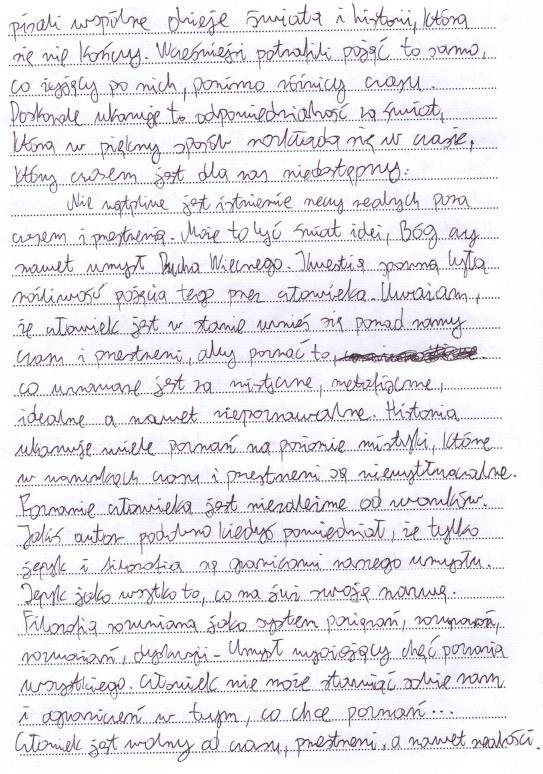 pisali wspólne dzieje świata i historii, która
się nie kończy. Wcześniejsi potrafili pojąć to samo,
co żyjący po nich, pomimo różnicy czasu.
Doskonale ukazuje to odpowiedzialność za świat,
która w piękny sposób rozkłada się w czasie,
który czasem jest dla nas niedostępny.
Nie wątpliwe jest istnienie rzeczy realnych poza
czasem i przestrzenią. Może to być świat idei, Bóg czy
nawet umysł Ducha Wiecznego. Kwestią sporną byłą
możliwość pojęcia tego przez człowieka. Uważam,
że człowiek jest w stanie wznieś się ponad ramy
czasu i przestrzeni, aby poznać to,
co uznawane jest za mistyczne, metafizyczne,
idealne a nawet niepoznawalne. Historia
ukazuje wiele poznań na poziomie mistyki, które
w warunkach czasu i przestrzeni są niewytłumaczalne.
Poznanie człowieka jest niezależne od warunków.
Jakiś autor podobno kiedyś powiedział, że tylko
język i filozofia są granicami naszego umysłu.
Język jako wszytko to, co ma już swoją nazwę.
Filozofia rozumiana jako system pojęć, rozważań,
rozmów, dyskusji - Umysł wyrażający chęć poznania
wszystkiego. Człowiek nie może stawiać sobie ram
i ograniczeń w tym, co chce poznać...
Człowiek jest wolny od czasu, przestrzeni, a nawet realności.